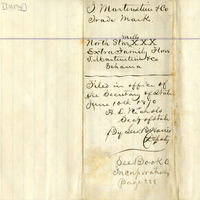 J Martinstein & Co
Trade Mark
Mills
North Star XXX
Extra Family Flour
J. Martinstein & Co
Filed in office of
the Secretary of State
June 10th 1870
H. L. Nichols
Secy of State
By
Deputy
See Book
Incorporations
Page